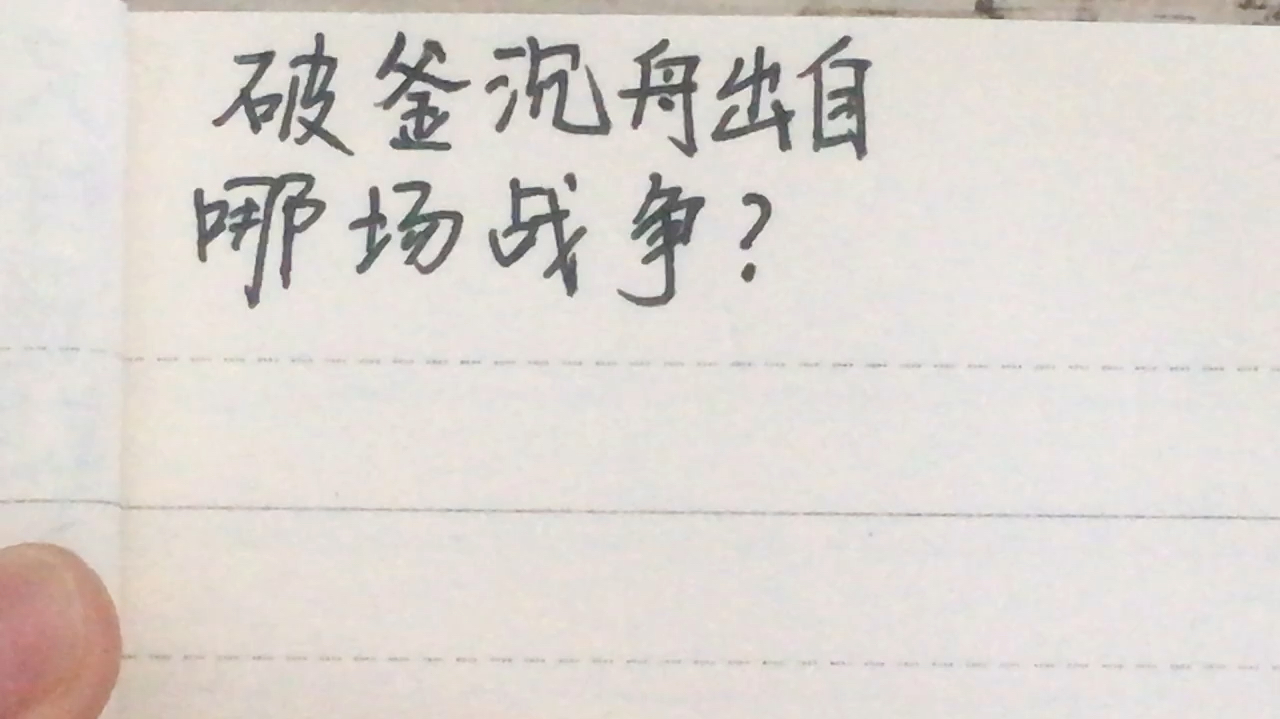 破釜沉舟出自
哪场战争?